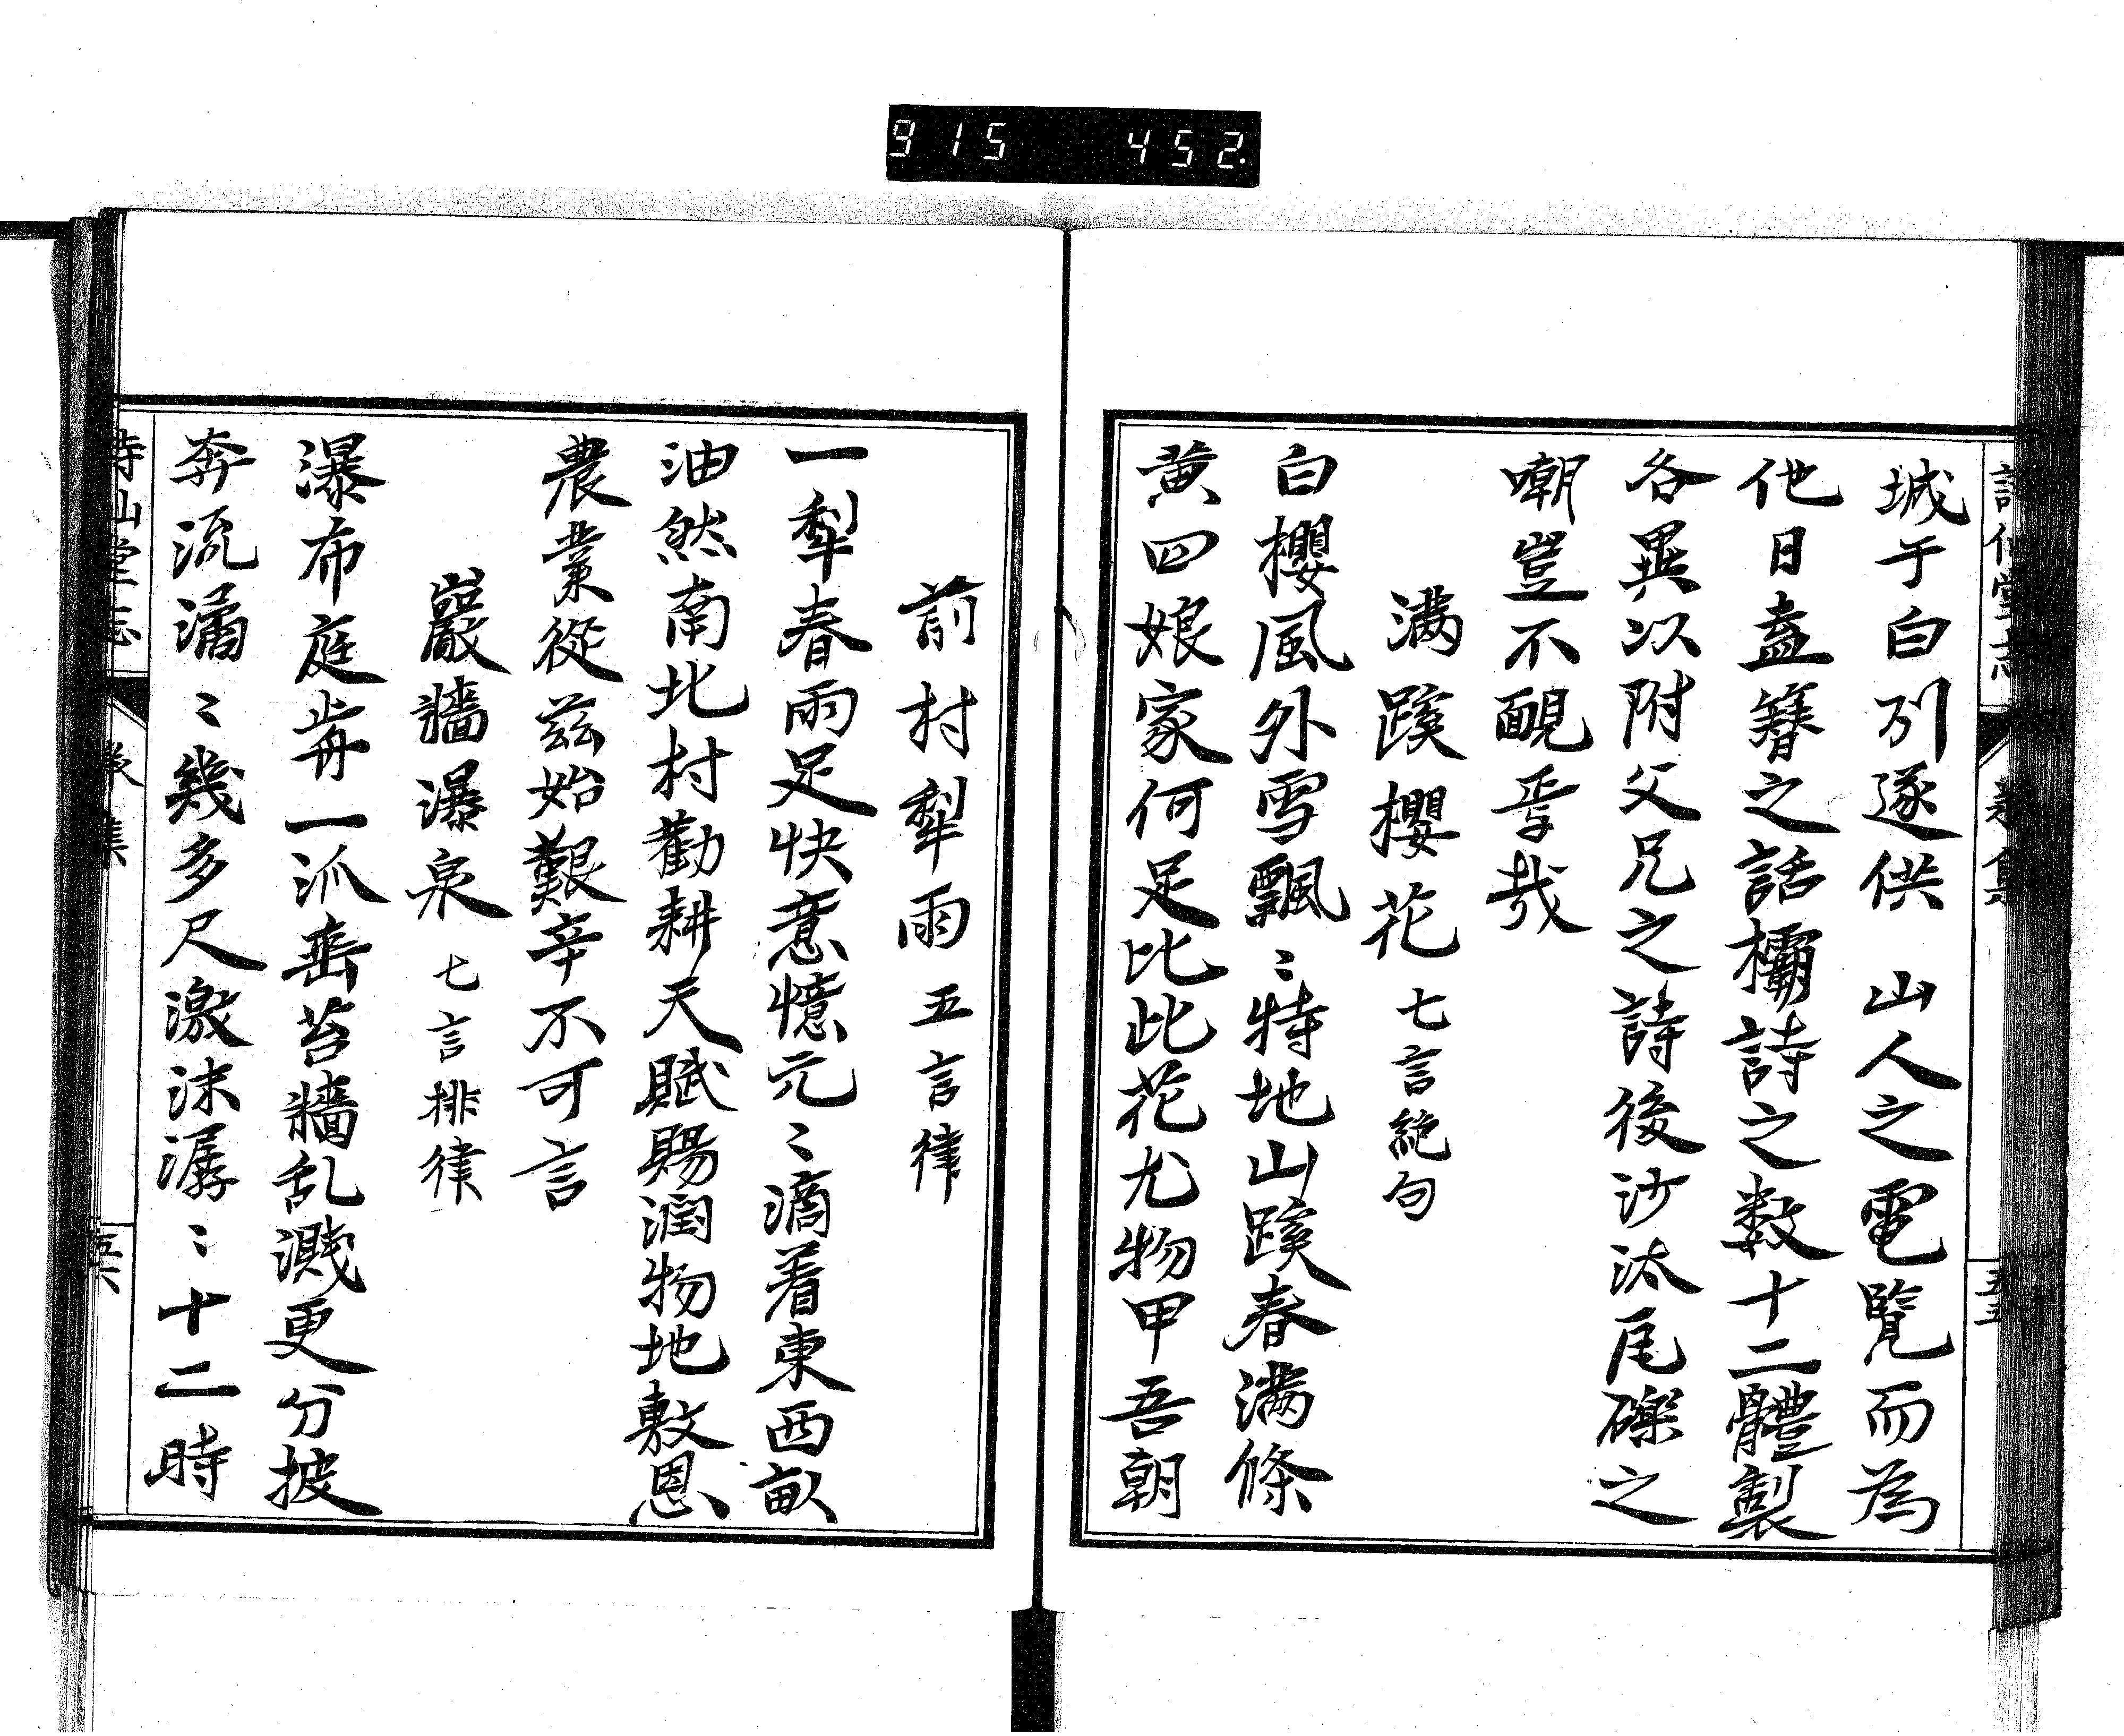 915 452
城于白列遂供　山人之電覧而為
他日盍簪之話欛詩之数十二體製
各異以附父兄之詩後沙汰尾礫之
嘲豈不靦乎哉
満蹊櫻花 七言絶句
白櫻風外雪飄〻特地山蹊春満條
黄四娘家何足比此花尤物甲吾朝
前村犁雨 五言律
一犁春雨足快意憶元〻滴着東西畝
油然南北村勸耕天賦賜潤物地敷恩
農業從茲始艱辛不可言
巖牆瀑泉 七言排律
瀑布庭前一派垂苔牆乱濺更分披
奔流潏〻幾多尺激沫潺〻十二時
詩仙堂志
五六